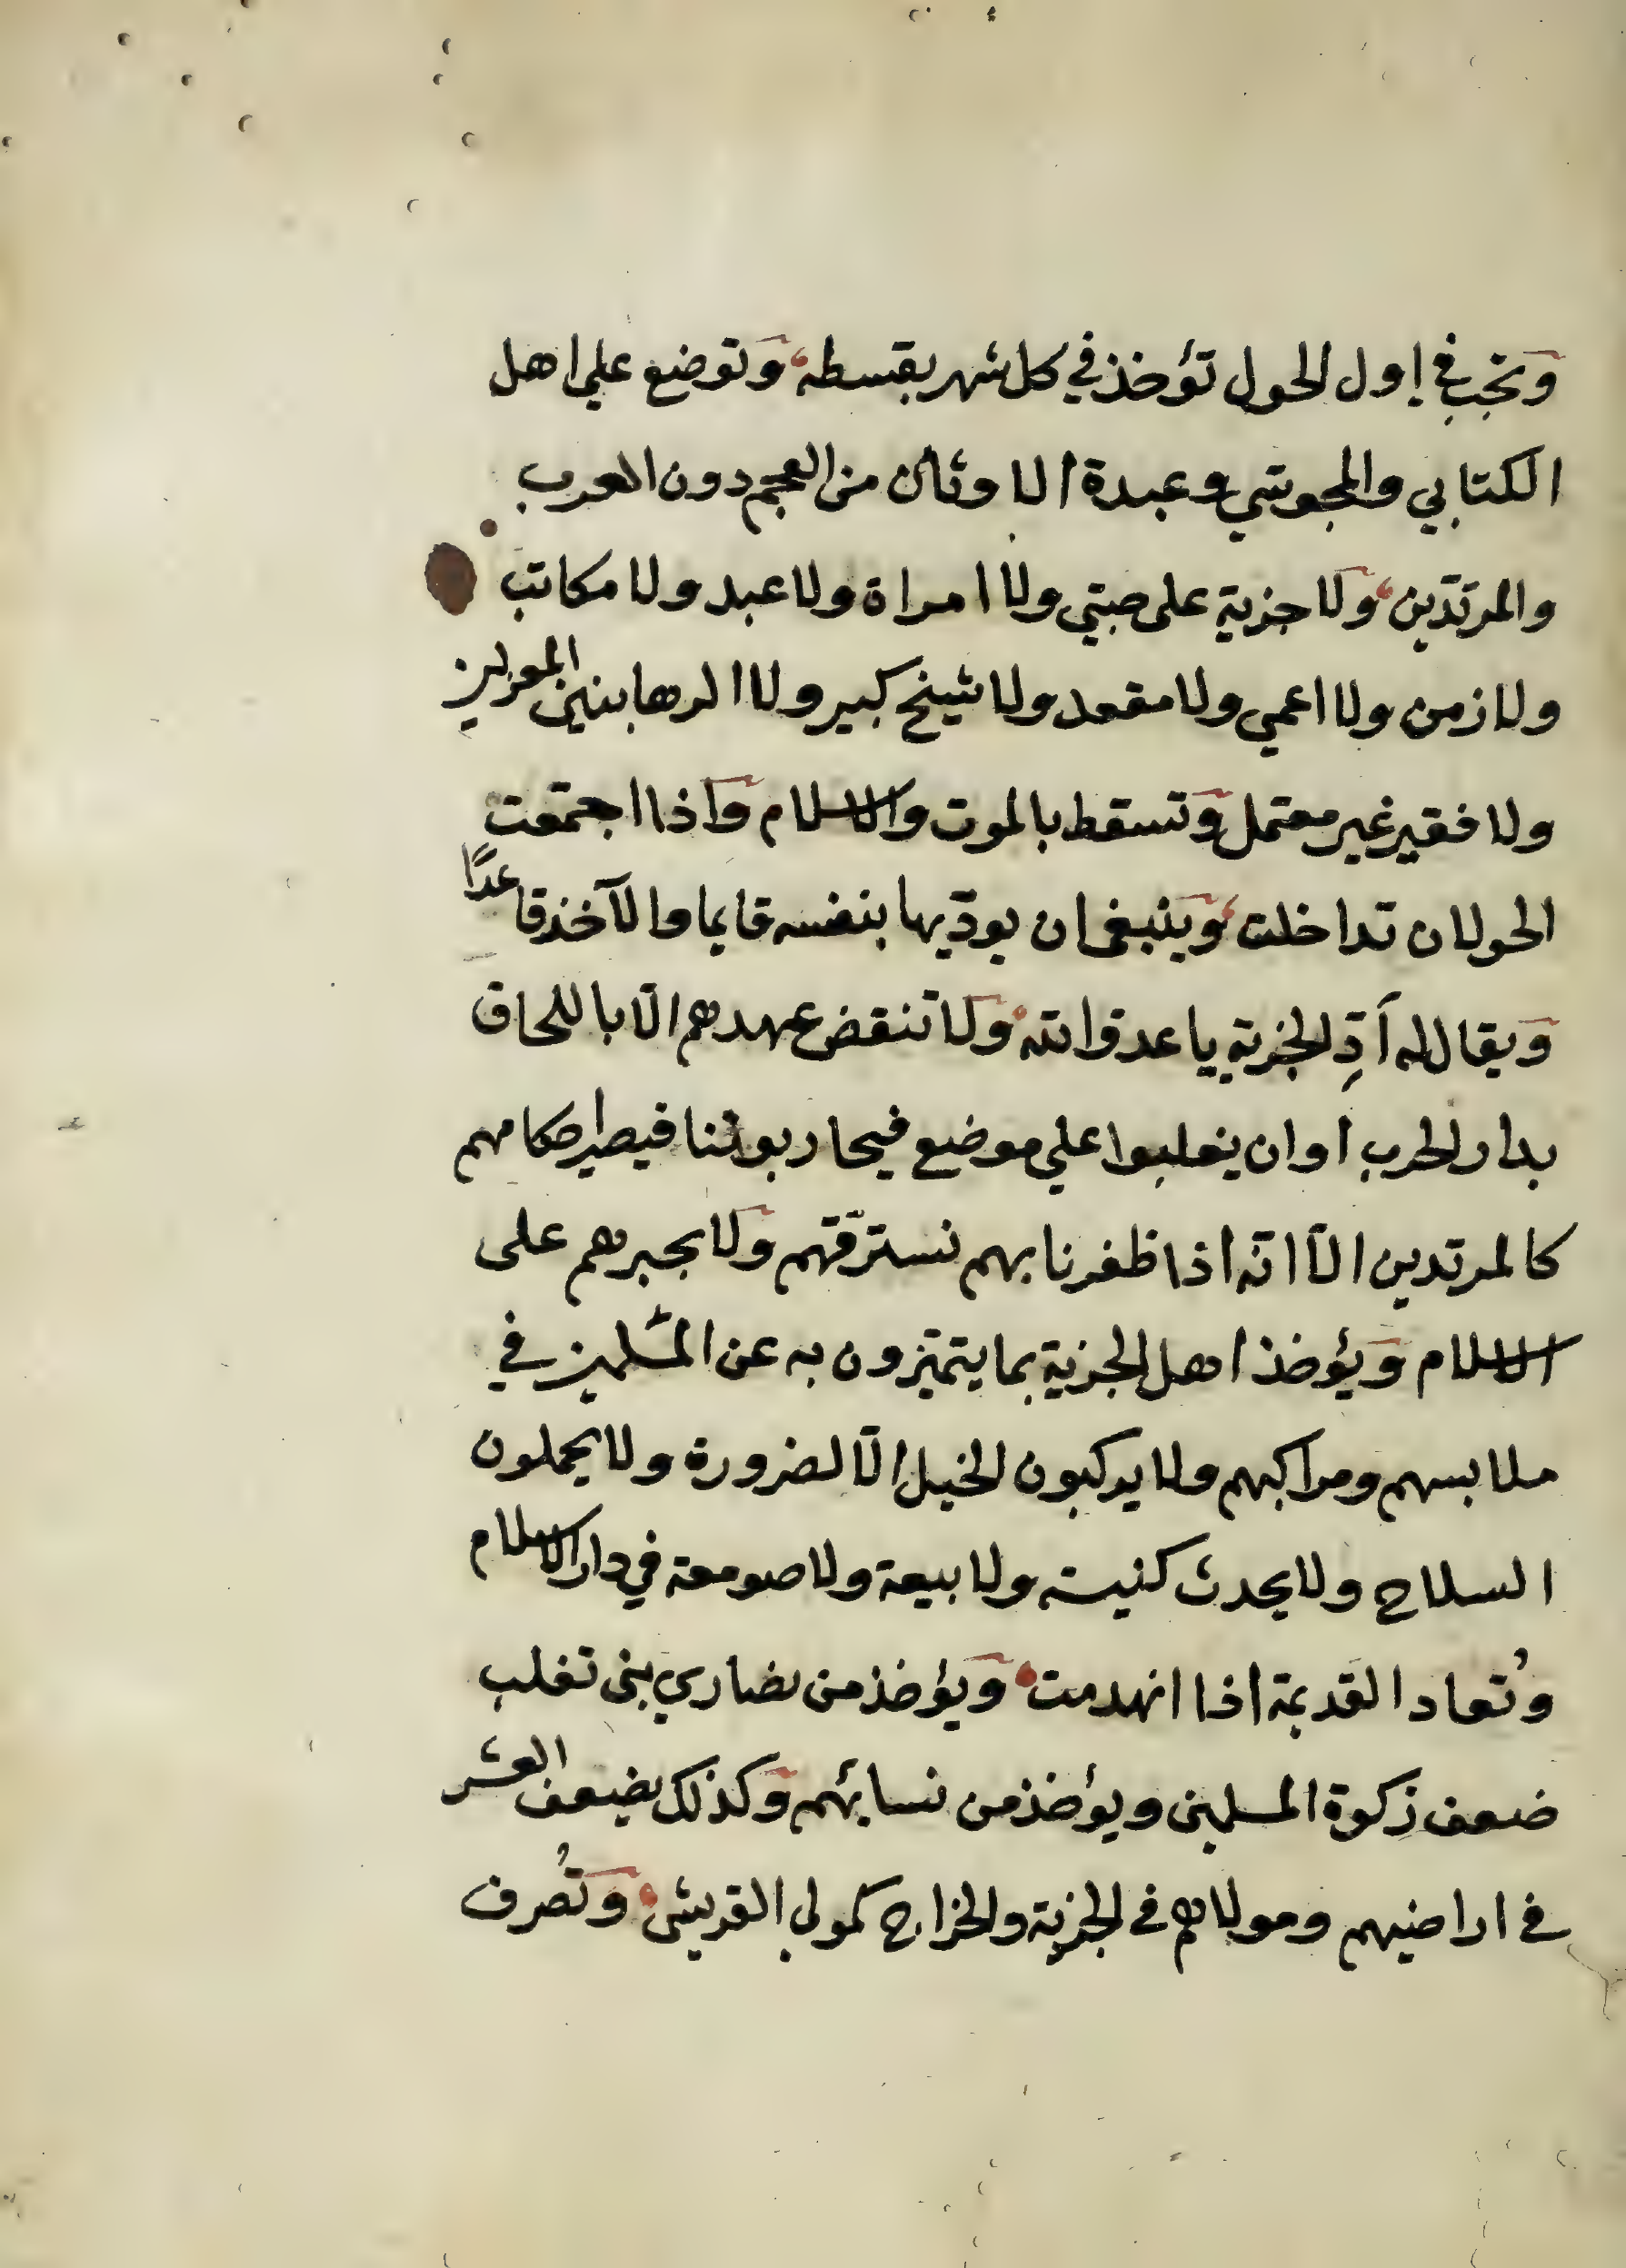 وتجب في اول الحول تؤخذ في كل شهر بقسطه وتوضع على اهل
الكتابي والمجوسي وعبدة الاوثان من العجم دون العرب
والمرتدين ولا جزية على صبي ولا امراة ولا عبد ولا مكاتب
ولا زمن ولا اعمي ولا مقعد ولا شيخ كبير ولا الرهابنين المعزلين
ولا فقير غير معتمل وتسقط بالموت والاسلام واذا اجتمعت
الحولان تداخلت وينبغي ان يودّيها بنفسه قايما والآخذ قاعدًا
ويقال له أدِّ الجزية يا عدو الله ولا تنقض عهدهم الّا باللحاق
بدار الحرب او ان يغلبوا علي موضع فيحاربوننا فيصير احكامهم
كالمرتدين الّا انّه اذا ظفرنا بهم نسترقّهم ولا نجبرهم على
الاسلام ويؤخذ اهل الجزية بما يتميّزون به عن المسلمين في
ملابسهم ومراكبهم ولا يركبون الخيل الّا لضرورة ولا يحملون
السلاح ولا يحدث كنيسة ولا بيعة ولا صومعة في دار الاسلام
وتعاد القديمة اذا انهدمت ويؤخذ من نصاري بنى تغلب
ضعف زكوة المسلمين ويؤخذ من نسائهم وكذلك يضعف العشر
في اراضيهم ومولاهم في الجزية والخراج كمولي القريشي وتُصرف